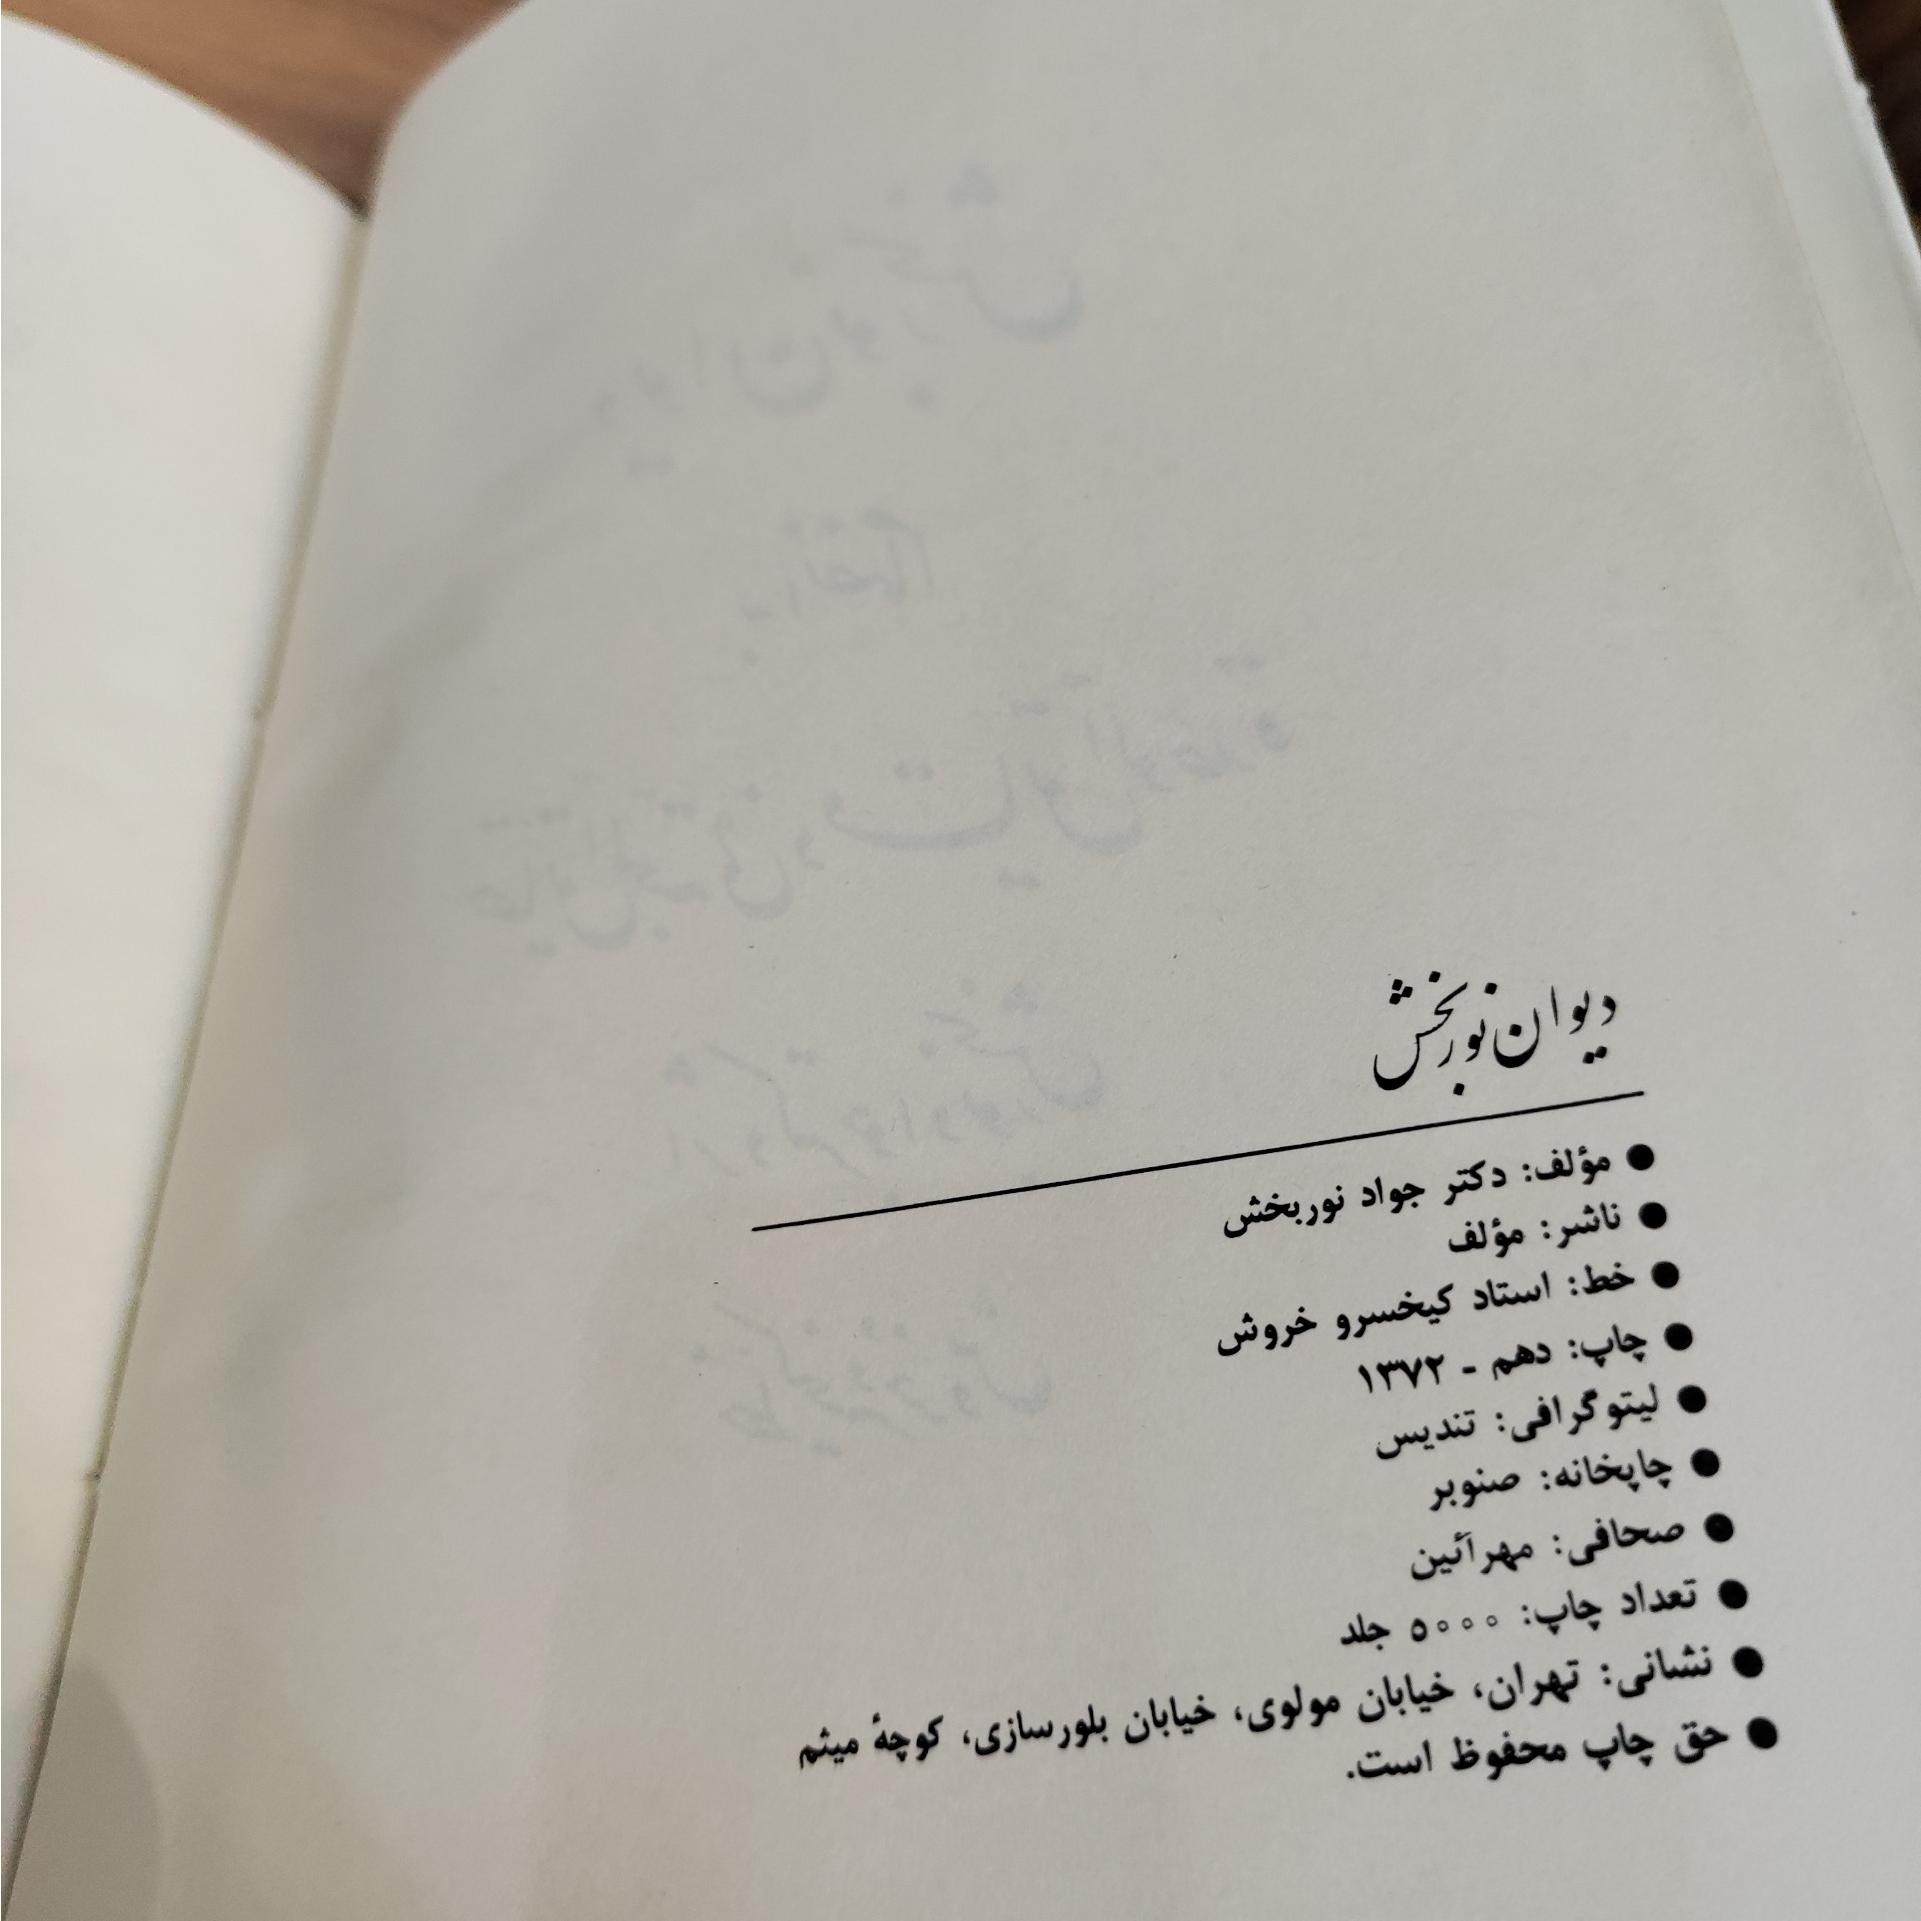 دیوان نوربخش
● مؤلف: دکتر جواد نوربخش
● ناشر: مؤلف
● خط: استاد کیخسرو خروش
● چاپ: دهم - ۱۳۷۲
● لیتوگرافی: تندیس
● چاپخانه: صنوبر
● صحافی: مهرآئین
● تعداد چاپ: ۵۰۰۰ جلد
● نشانی: تهران، خیابان مولوی، خیابان بلورسازی، کوچهٔ میثم
● حق چاپ محفوظ است.